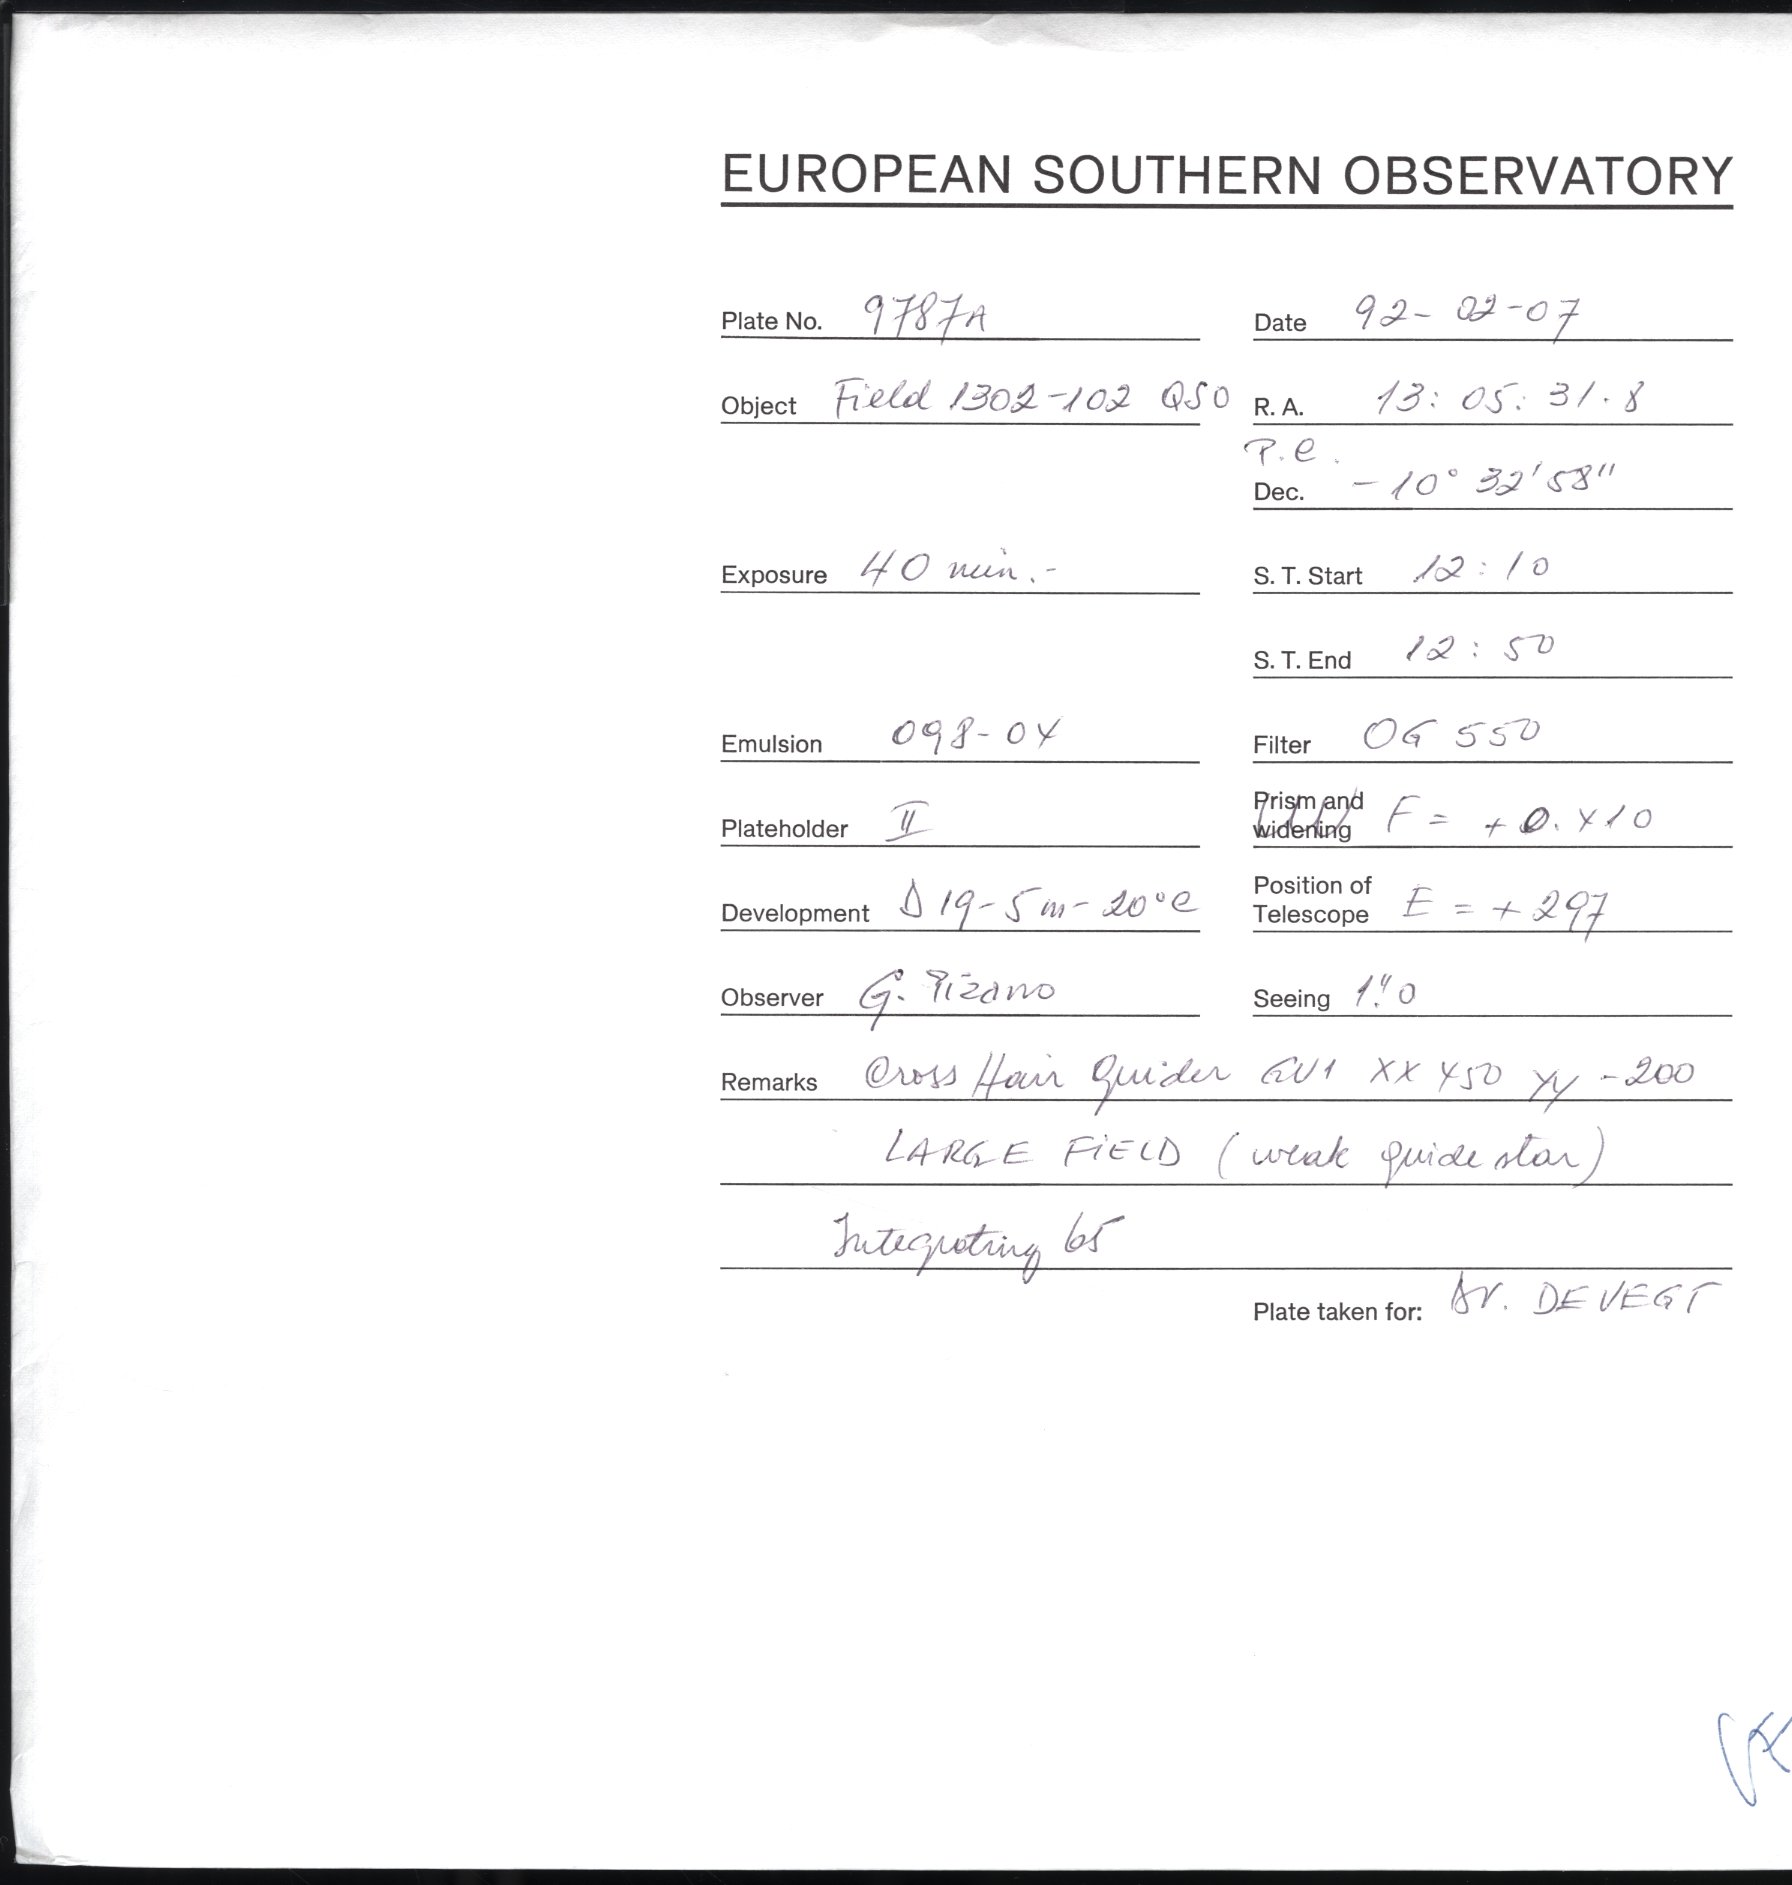 EUROPEAN SOUTHERN OBSERVATORY
Plate No. 9787A Date 92-02-07
Object Field 1302-102 QSO R. A. 13: 05: 31.8
P.C.
Dec. -10° 32' 58"
Exposure 40 min.- S. T. Start 12:10
S. T. End 12:50
Emulsion 098-04 Filter OG 550
Plateholder II Prism and widening F = +0.410
Development D19-5m-20°C Position of Telescope E = +297
Observer G. Pizarro Seeing 1".0
Remarks Cross Hair Guider GV1 XX 450 YY -200
LARGE FIELD (weak guide star)
Integrating 65
Plate taken for: Dr. DE VEGT